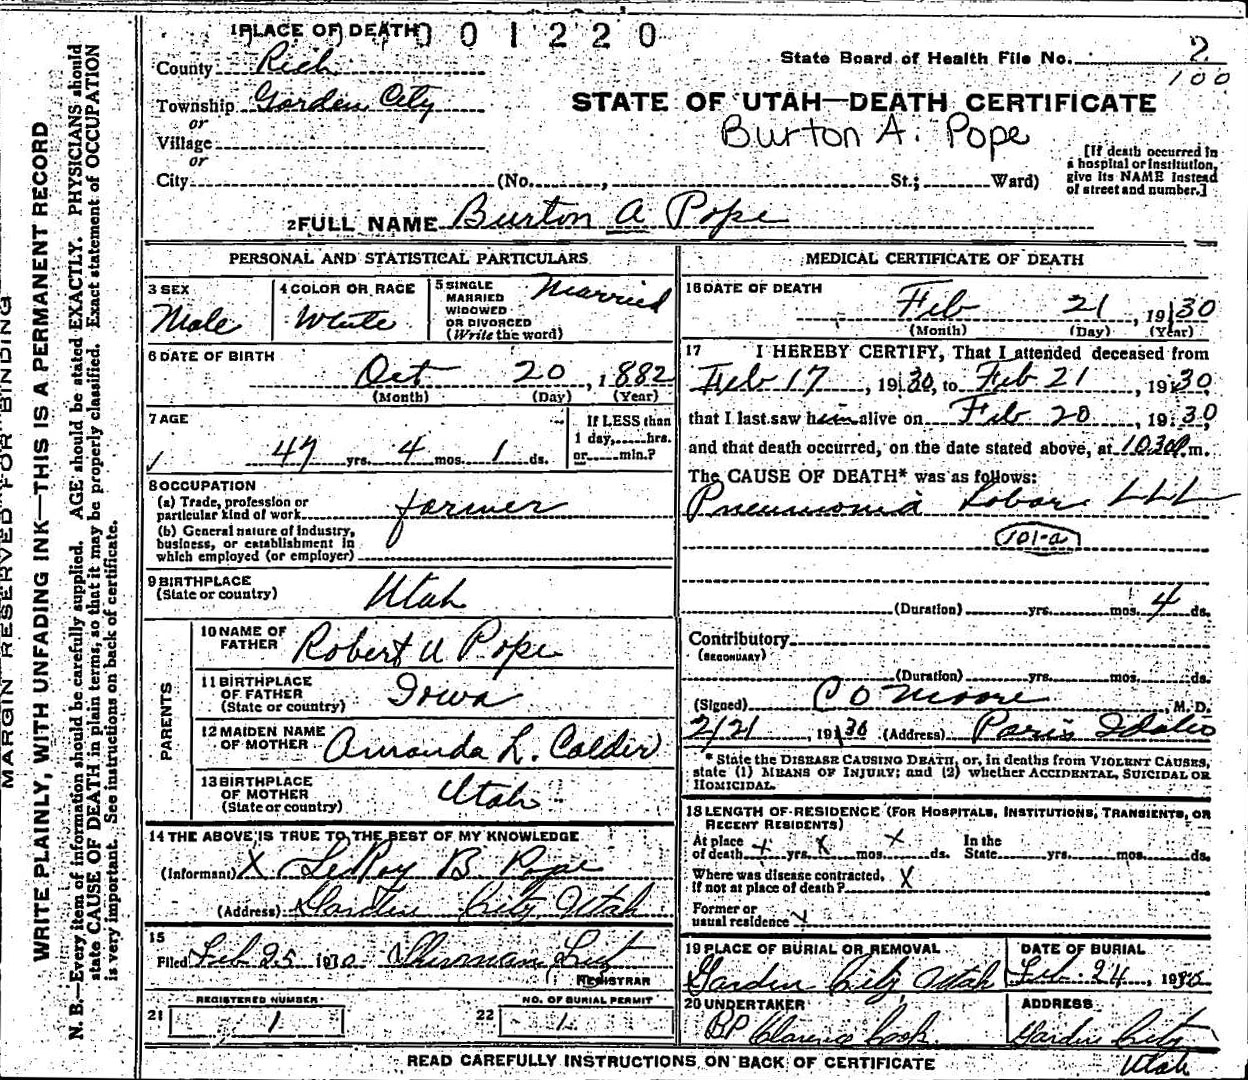 MARGIN RESERVED FOR BINDING
WRITE PLAINLY, WITH UNFADING INK—THIS IS A PERMANENT RECORD
N. B.—Every item of information should be carefully supplied. AGE should be stated EXACTLY. PHYSICIANS should
state CAUSE OF DEATH in plain terms, so that it may be properly classified. Exact statement of OCCUPATION
is very important. See instructions on back of certificate.
1 PLACE OF DEATH 001220
County Rich
Township Garden City
or
Village
or
City (No. , St.; Ward)
State Board of Health File No. 2
100
STATE OF UTAH—DEATH CERTIFICATE
Burton A. Pope
[If death occurred in
a hospital or institution,
give its NAME instead
of street and number.]
2 FULL NAME Burton A Pope
PERSONAL AND STATISTICAL PARTICULARS
3 SEX
Male
4 COLOR OR RACE
White
5 SINGLE
MARRIED
WIDOWED
OR DIVORCED
(Write the word)
Married
6 DATE OF BIRTH
Oct 20, 1882
(Month) (Day) (Year)
7 AGE
47 yrs. 4 mos. 1 ds.
If LESS than
1 day, hrs.
or min.?
8 OCCUPATION
(a) Trade, profession or
particular kind of work farmer
(b) General nature of industry,
business, or establishment in
which employed (or employer)
9 BIRTHPLACE
(State or country) Utah
PARENTS
10 NAME OF
FATHER Robert U Pope
11 BIRTHPLACE
OF FATHER
(State or country) Iowa
12 MAIDEN NAME
OF MOTHER Amanda L. Calder
13 BIRTHPLACE
OF MOTHER
(State or country) Utah
14 THE ABOVE IS TRUE TO THE BEST OF MY KNOWLEDGE
(Informant) X LeRoy B Pope
(Address) Garden City Utah
15
Filed Feb 25 1930 Sherman
REGISTRAR
21 REGISTERED NUMBER
1
22 NO. OF BURIAL PERMIT
1
MEDICAL CERTIFICATE OF DEATH
16 DATE OF DEATH
Feb 21, 1930
(Month) (Day) (Year)
17 I HEREBY CERTIFY, That I attended deceased from
Feb 17, 1930, to Feb 21, 1930,
that I last saw him alive on Feb 20, 1930,
and that death occurred, on the date stated above, at 1030 m.
The CAUSE OF DEATH* was as follows:
Pneumonia Lobar LLL
101-a
(Duration) yrs. mos. 4 ds.
Contributory
(SECONDARY)
(Duration) yrs. mos. ds.
(Signed) C O Moore, M. D.
2/21, 1930 (Address) Paris Idaho
* State the DISEASE CAUSING DEATH, or, in deaths from VIOLENT CAUSES,
state (1) MEANS OF INJURY; and (2) whether ACCIDENTAL, SUICIDAL OR
HOMICIDAL.
18 LENGTH OF RESIDENCE (FOR HOSPITALS, INSTITUTIONS, TRANSIENTS, OR
RECENT RESIDENTS)
At place
of death x yrs. x mos. x ds. In the
State yrs. mos. ds.
Where was disease contracted,
if not at place of death? X
Former or
usual residence x
19 PLACE OF BURIAL OR REMOVAL
Garden City Utah
DATE OF BURIAL
Feb. 24, 1930
20 UNDERTAKER
Clarence Cook
ADDRESS
Garden City
Utah
READ CAREFULLY INSTRUCTIONS ON BACK OF CERTIFICATE